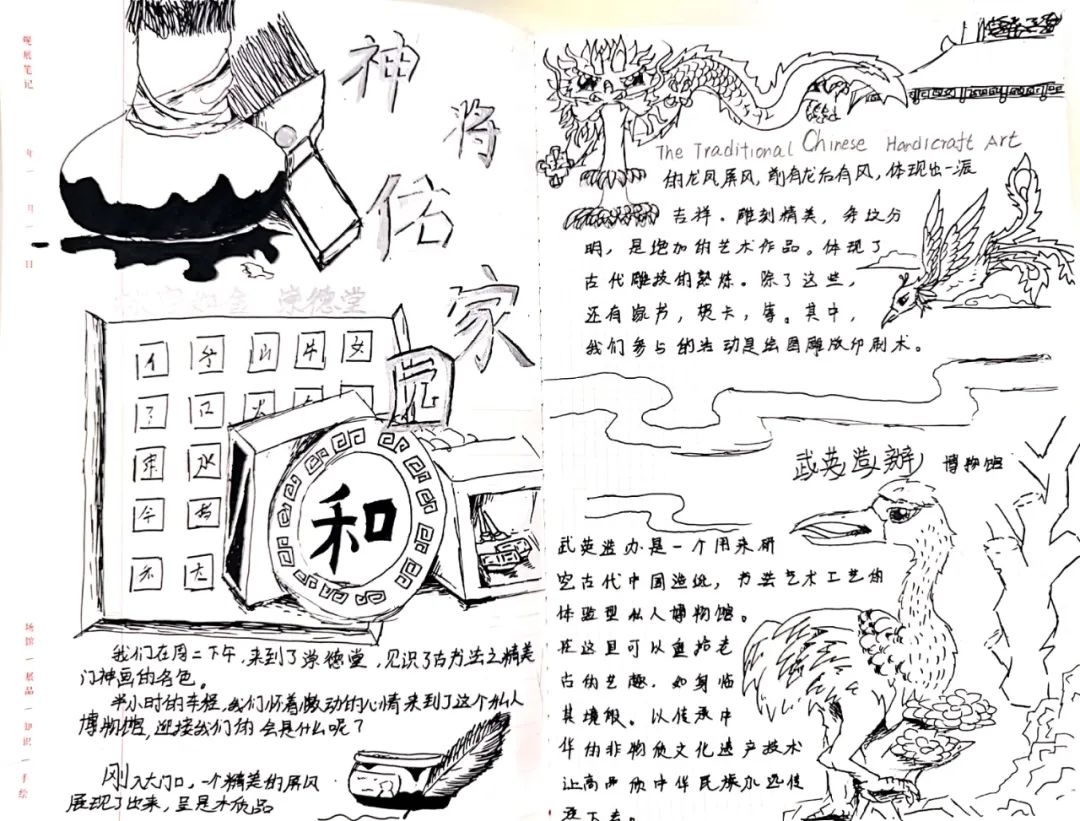 观展笔记
年 月 日
场馆 | 展品 | 知识 | 手绘
神
将
佑
家
崇德堂
山 牛 女
了 口 火
水
今
示
和
我们在周二下午,来到了崇德堂,见识了古书法之精美
门神画的名色。
半小时的车程,我们怀着激动的心情来到了这个私人
博物馆,迎接我们的会是什么呢?
刚入大门口,一个精美的屏风
展现了出来,呈是木质品
The Traditional Chinese Handicraft Art
的龙凤屏风,前有龙后有凤,体现出一派
吉祥。雕刻精美,条纹分
明,是绝加的艺术作品。体现了
古代雕技的熟练。除了这些,
还有家书,贺卡,等。其中,
我们参与的活动是绘图雕版印刷术。
武英造办 博物馆
武英造办是一个用来研
究古代中国造纸,书装艺术工艺的
体验型私人博物馆。
在这里可以重拾老
古的艺趣,如身临
其境般。以传承中
华的非物质文化遗产技术
让高品质中华民族永远传
逐下去。